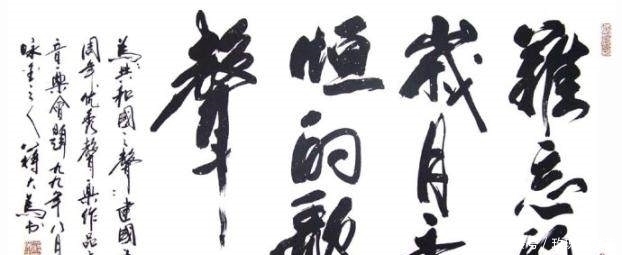 難忘的
歲月永
恒的歌
聲
為共和國之聲:建國
周年优秀聲樂作品
音樂會題九九年八月
蔣大為书